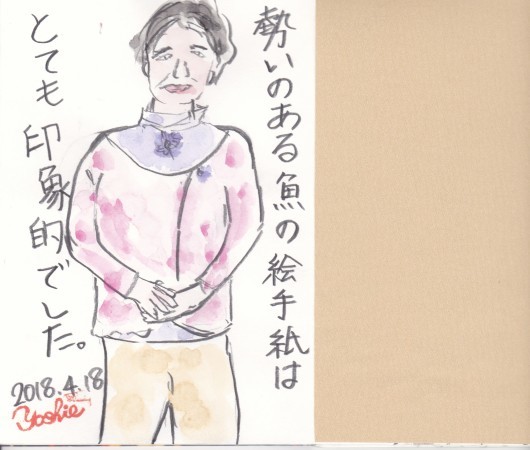 勢いのある魚の絵手紙は
とても印象的でした。
2018.4.18
Yoshie